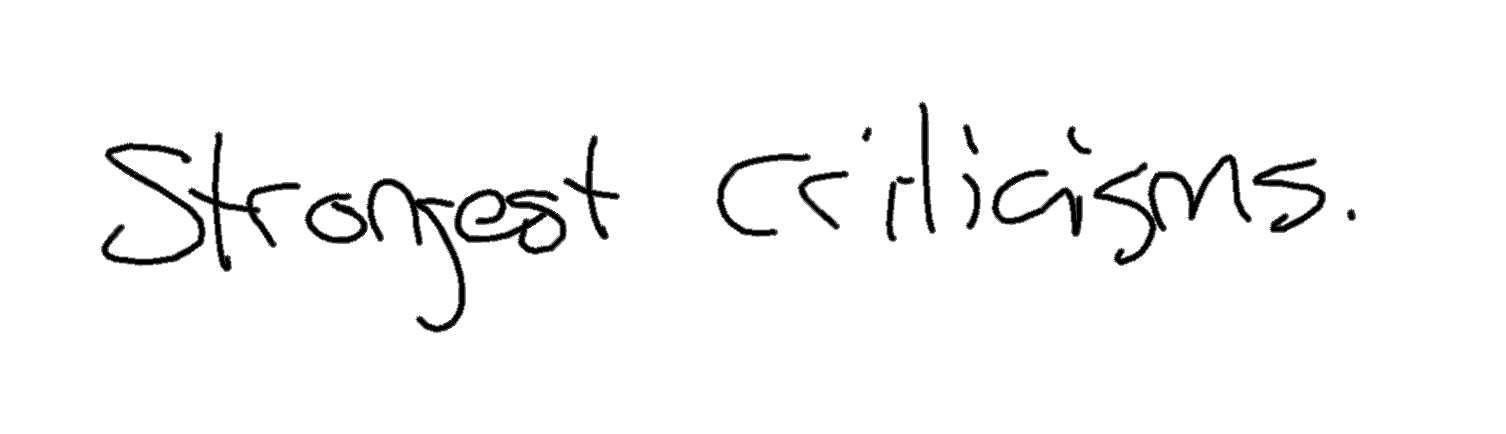 Strongest criticisms.